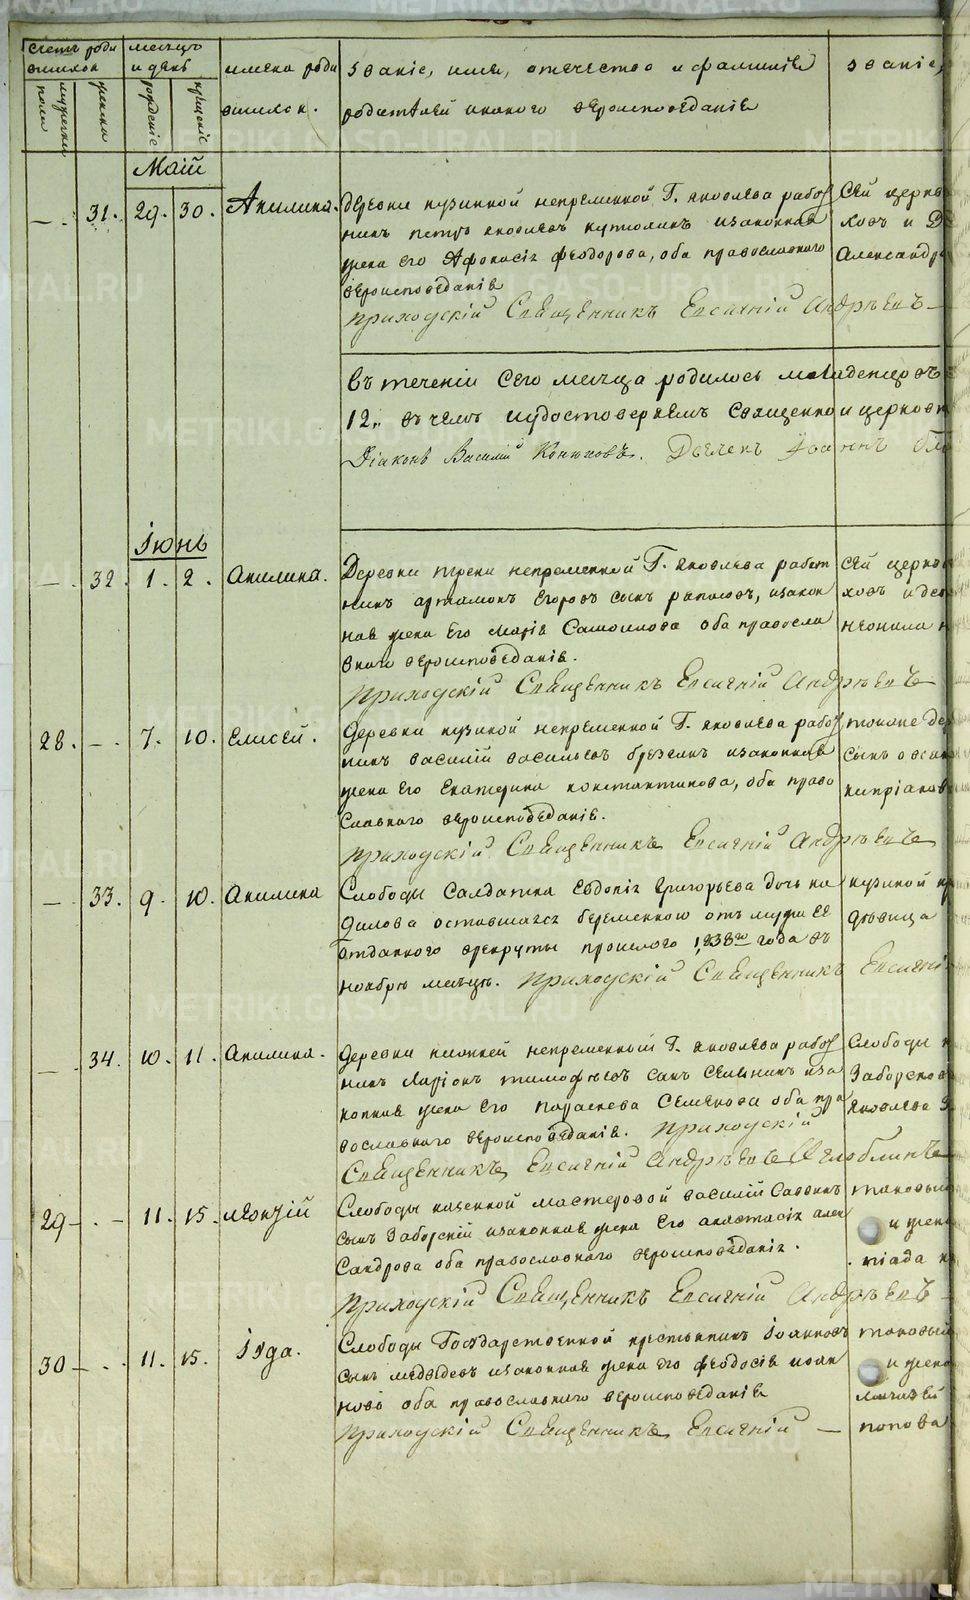 Счетъ роди
вшихся
мужеска
пола
женска
месяцъ
и день
рождение
крещение
имена роди
вшихся.
звание, имя, отечество и фамилия
родителей и какого вероисповедания
звание,
Маій
31. 29. 30. Акилина.
Деревни кузинной непременной Г. Яковлева работ
никъ петръ яковлевъ изаконная
жена его Афонасия феодорова, оба православного
вероисповедания
Приходскій Священникъ Евсигній Андреевъ
Сей церкв
ходъ и
Александр
въ течении сего месяца родилось младенцовъ
12. въ чемъ и удостоверяемъ священно и церковн
Діаконъ Василий Конюховъ. Дьячекъ Іоаннъ
Іюнь
32. 1. 2. Акилина.
Деревни треки непременной Г. Яковлева работ
никъ артамонъ Егоровъ сынъ, изакон
ная жена Его Марія Самоилова оба правосла
вного вероисповедания.
Приходскій Священникъ Евсигній Андреевъ
Сей церкв
ходъ и дев
неонила
28. 7. 10. Елисей.
Деревни кузиной непременной Г. Яковлева работ
никъ василій васильевъ изаконная
жена Его Екатерина константинова, оба право
славного вероисповедания.
Приходскій Священникъ Евсигній Андреевъ
тоюже дер
сынъ
кипріанов
33. 9. 10. Акилина
Слободы Салдатка Евдокия Григорьева дочь
оставшаяся беременною отъ мужа ее
отданного врекруты прошлого 1838го года въ
ноябре месяце. Приходскій Священникъ Евсигній
кузиной
девица
34. 10. 11. Акилина.
Деревни нижней непременный Г. Яковлева работ
никъ Ларіонъ тимофеевъ сынъ иза
конная жена Его Параскева Семенова оба пра
вославного вероисповедания. Приходскій
Священникъ Евсигній Андреевъ Оглоблинъ
Слободы
Заборсков
Яковлева
29 11. 15. Леонтій
Слободы казенной мастеровой василий Саввинъ
сынъ Заборскій изаконная жена Его анастасия алек
сандрова оба православного вероисповедания.
Приходскій Священникъ Евсигній Андреевъ
и жена
піада
30 11. 15. Іуда.
Слободы Государственной крестьянинъ Іоанновъ
сынъ медведевъ изаконная жена его феодосия иоан
нова оба православного вероисповедания
Приходскій Священникъ Евсигній
и жена
попова
METRIKI.GASO-URAL.RU